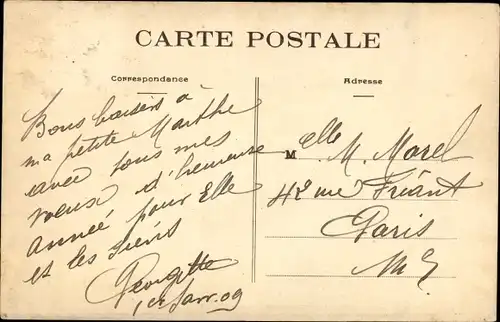 CARTE POSTALE
Correspondance
Adresse
Bons baisers à
ma petite Marthe
avec tous mes
voeux d'heureuse
année pour Elle
et les siens
Georgette
1er Janv. 09
Melle M. Morel
42 rue Friant
Paris